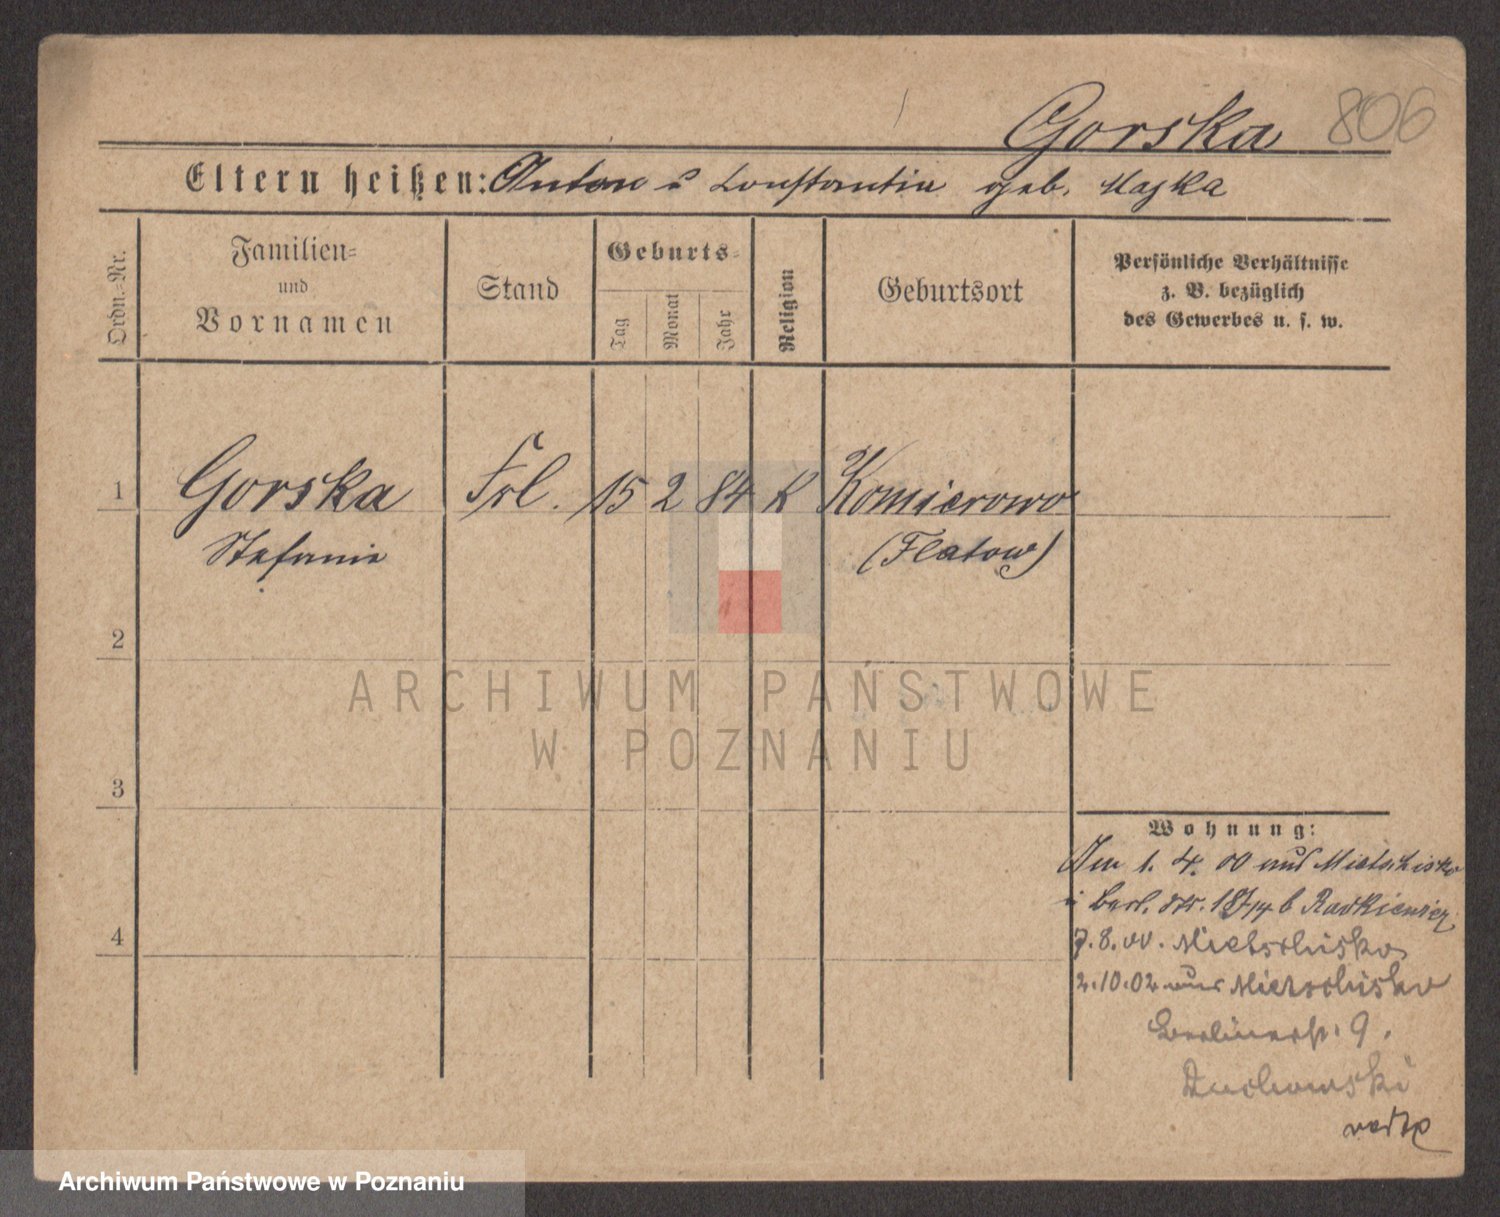 Gorska 806
Eltern heißen: Anton u Constantia geb. Majka
Ordn.-Nr.
Familien-
und
Vornamen
Stand
Geburts-
Tag
Monat
Jahr
Religion
Geburtsort
Persönliche Verhältnisse
z. B. bezüglich
des Gewerbes u. s. w.
1 Gorska Frl. 15 2 84 K Komierowo
Stefanie (Flatow)
2
ARCHIWUM PAŃSTWOWE
W POZNANIU
3
Wohnung:
Am 1. 4. 00 aus Mietschisko
i Berl. Str. b Radkiewicz
4
7.8.00. Mietschisko
2.10.02 aus Mietschisko
Berlinerstr. 9.
Archiwum Państwowe w Poznaniu